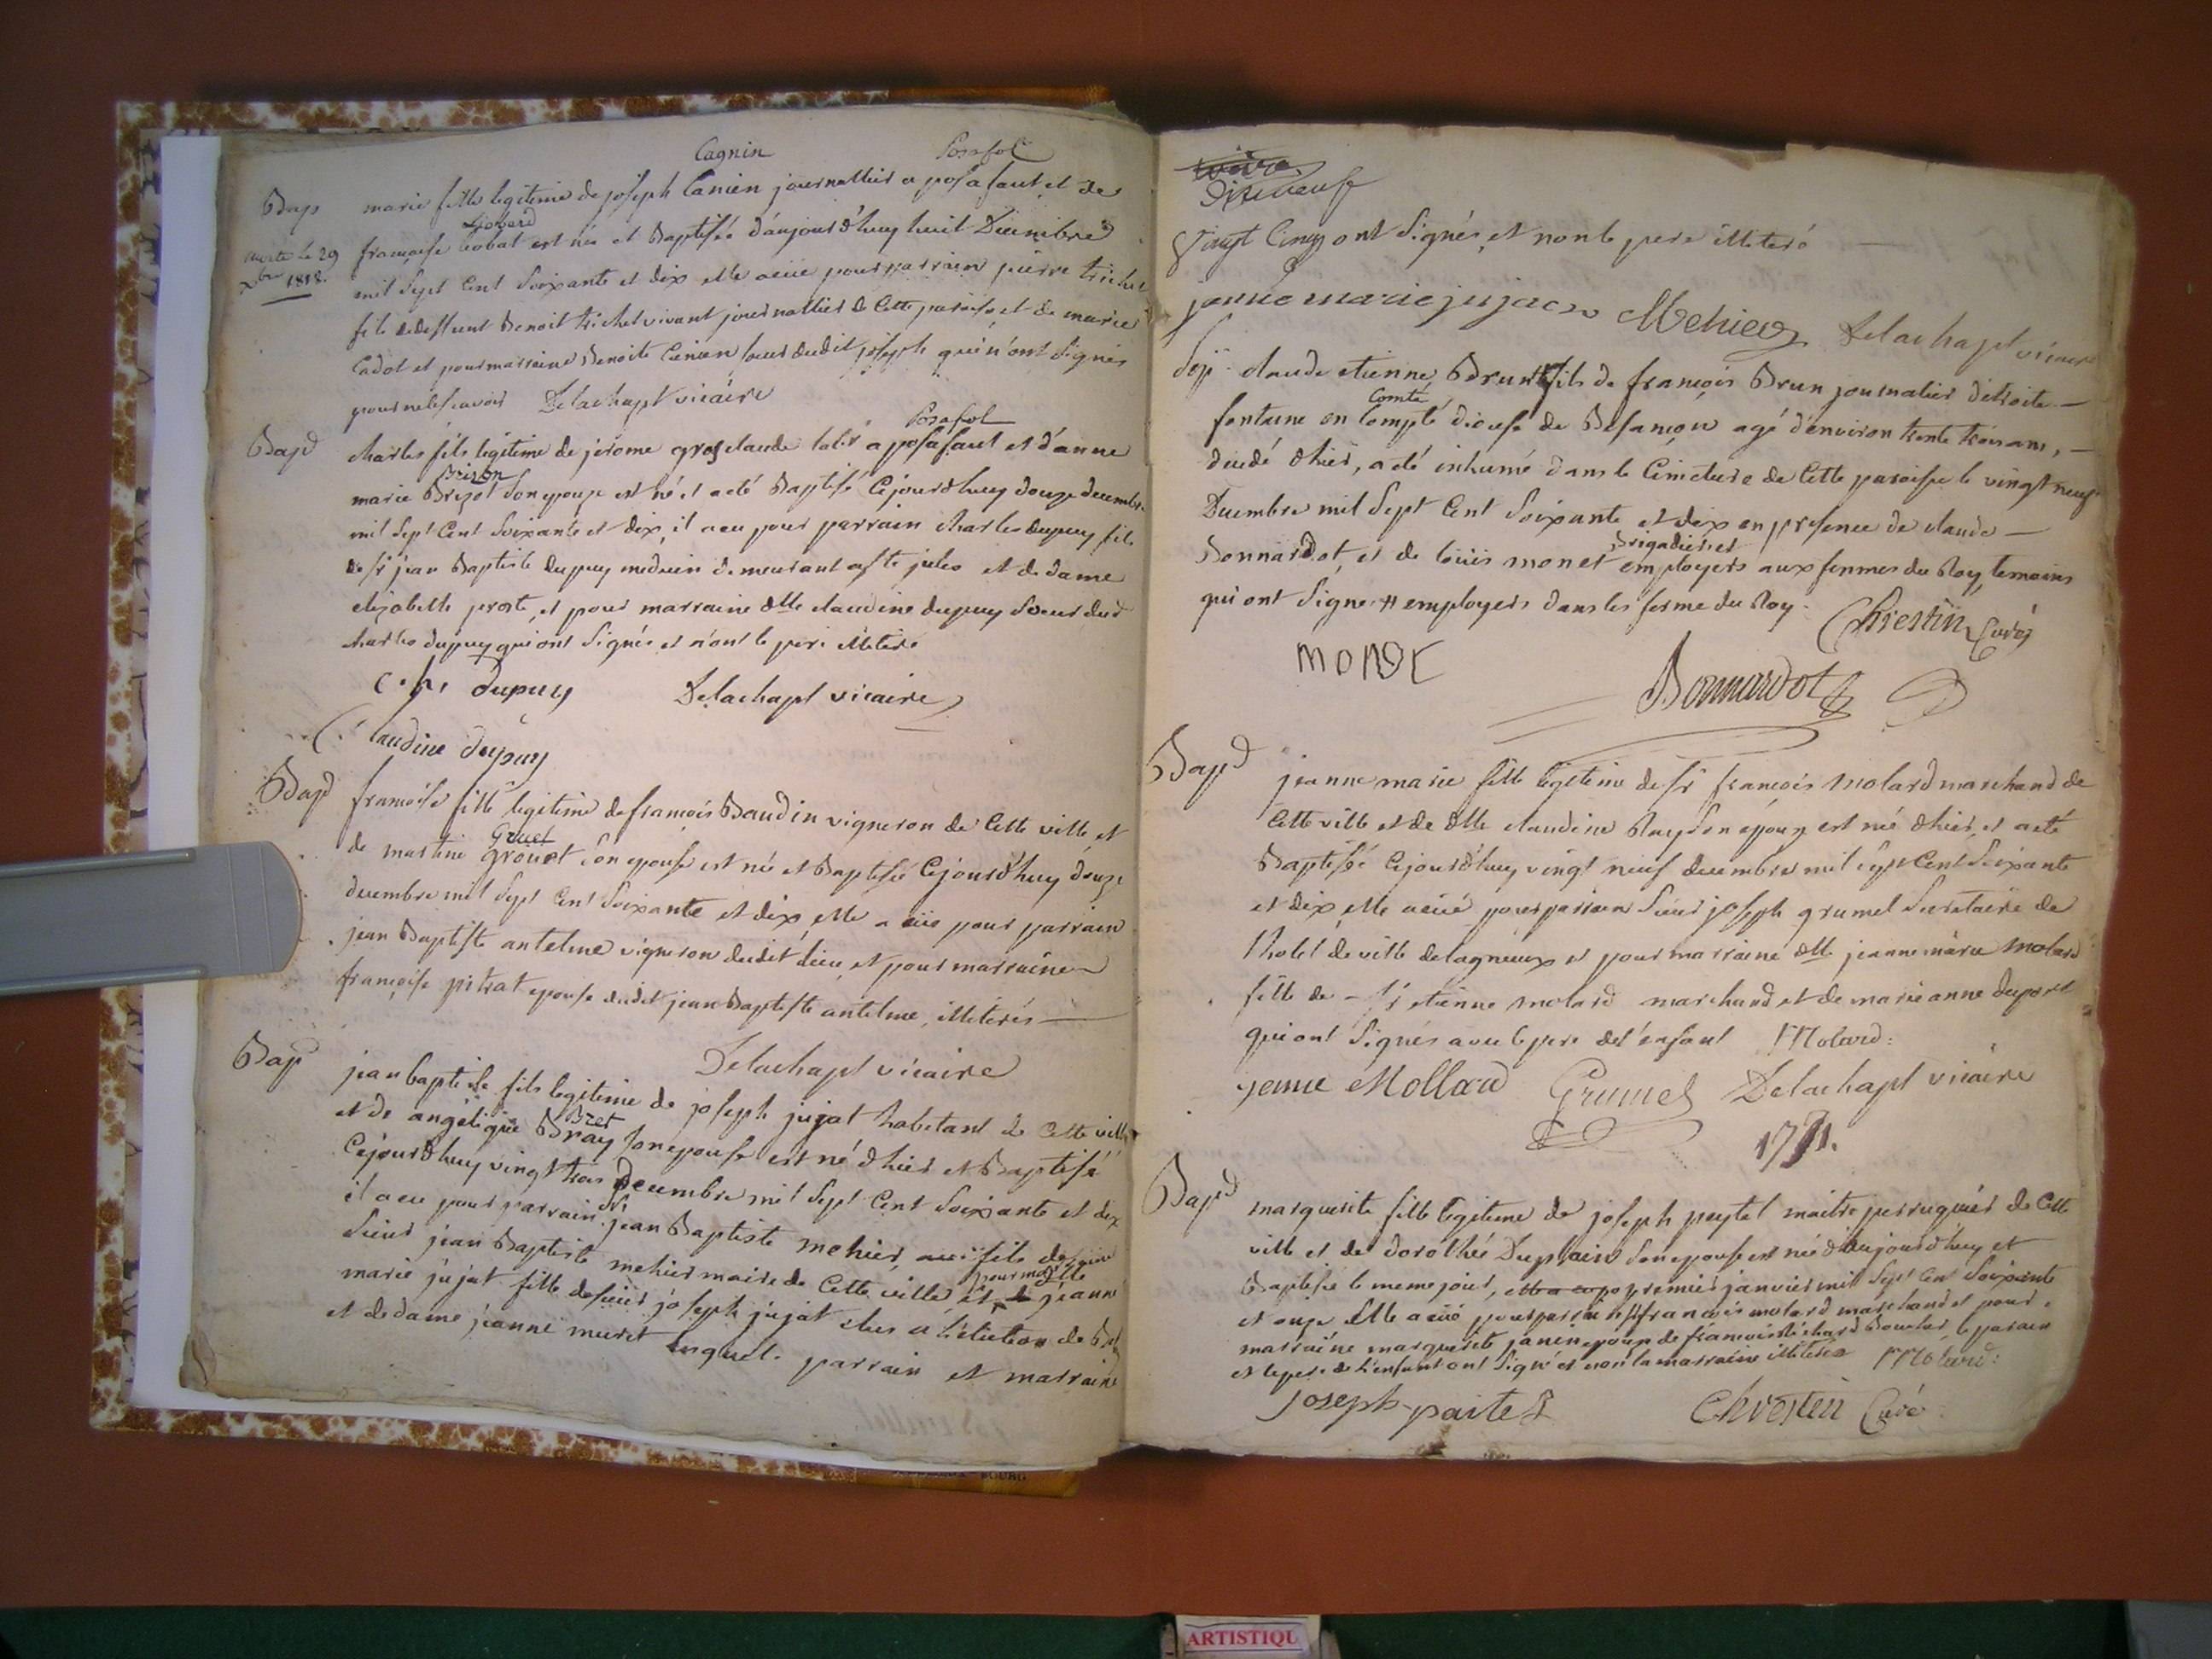 Cagnin Posafol
Bap marie fille legitime de joseph Canien journallier a posafaut et de
Liobard
françoise liobat est née et Baptisée d'aujourd'huy huit Decembre
morte le 29
xbre 1818.
mil Sept Cent Soixante et dix elle a eüe pour parrain pierre trichet
fils de deffunt Benoit trichet vivant journallier de Cette paroisse et de marie
Cadot et pour marraine Benoite Canien soeur dudit joseph qui n'ont Signés
pour ne le scavoir Delachapt vicaire
Posafol
Bapd charles fils legitime de jerome grosclaude labr a posafaut et d'anne
Brizon
marie Brizot son epouze est né et a eté Baptisé Cejourdhuy douze decembre
mil Sept Cent Soixante et dix, il a eu pour parrain charles dupuy fils
de sr jean Baptiste dupuy medecin demeurant a ste julie et de dame
elizabelle proste, et pour marraine dlle claudine dupuy Soeur dud
charles dupuy qui ont Signés et n'ont le pere illiteré
ch. dupuy Delachapt vicaire
Claudine dupuy
Bapd françoise fille legitime de françois Baudin vigneron de Cette ville et
Gruet
de martine grouet son epouse est né et Baptisée Cejourd'huy douze
decembre mil Sept Cent Soixante et dix, elle a eüe pour parrain
jean Baptiste antelme vigneron dudit lieu, et pour marraine
françoise pitrat epouse dudit jean Baptiste antelme, illiterés
Delachapt vicaire
Bapd jean baptiste fils legitime de joseph jujat habitant de Cette ville
Bret
et de angelique Bray son epouse est né d'hier et Baptisé
Cejourdhuy vingt trois Decembre mil Sept Cent Soixante et dix
il a eu pour parrain sr jean Baptiste mehier, fils de
Sieur jean Baptiste mehier maire de Cette ville et pour mare dlle jeanne
marie jujat fille de sieur joseph jujat elus a l'election de
et de dame jeanne muret Lequel parrain et marraine
Dixneuf
Vingt Cinq ont Signés et non le pere illiteré
jeanne marie jujac Mehier Delachapt vicaire
Sepe claude etienne Brun fils de françois Brun journalier detroite
Comté
fontaine en Compté diocese de Besançon agé d'environ trente trois ans,
decedé d'hier, a eté inhumé dans le Cimetiere de Cette paroisse le vingt neuf
Decembre mil Sept Cent Soixante et dix en presence de claude
Brigadier et
Bonnardot, et de loüis monet employers aux fermes du Roy, temoins
qui ont Signe # employers dans les ferme du Roy. Chrestin Curé
Bonnardot
Bapd jeanne marie fille legitime de sr françois molard marchand de
Cette ville et de dlle claudine Ray Son epouze est née d'hier, et a eté
Baptisée Cejourd'huy vingt neuf decembre mil sept Cent Soixante
et dix elle a eüé pour parrain Sieur joseph grumel Secretaire de
l'hotel de ville de lagnieux et pour marraine dlle jeanne marie molard
fille de sr etienne molard marchand et de marie anne duport
qui ont Signés avec le pere de l'enfant Molard:
jenne Mollard Grumel Delachapt vicaire
1771.
Bapd marguerite fille legitime de joseph peytel maitre perruquier de Cette
ville et de dorothée Duplain son epouse est née d'aujourd'huy et
Baptisée le meme jour, premier janvier mil Sept Cent Soixante
et onze Elle a eüe pour parrain sr françois molard marchand et pour
marraine marguerite janin epouze de françois Boucher, le parain
et le pere de l'enfant ont Signé et non la marraine illiterée Molard:
joseph paitel Chrestin Curé
ARTISTIQU